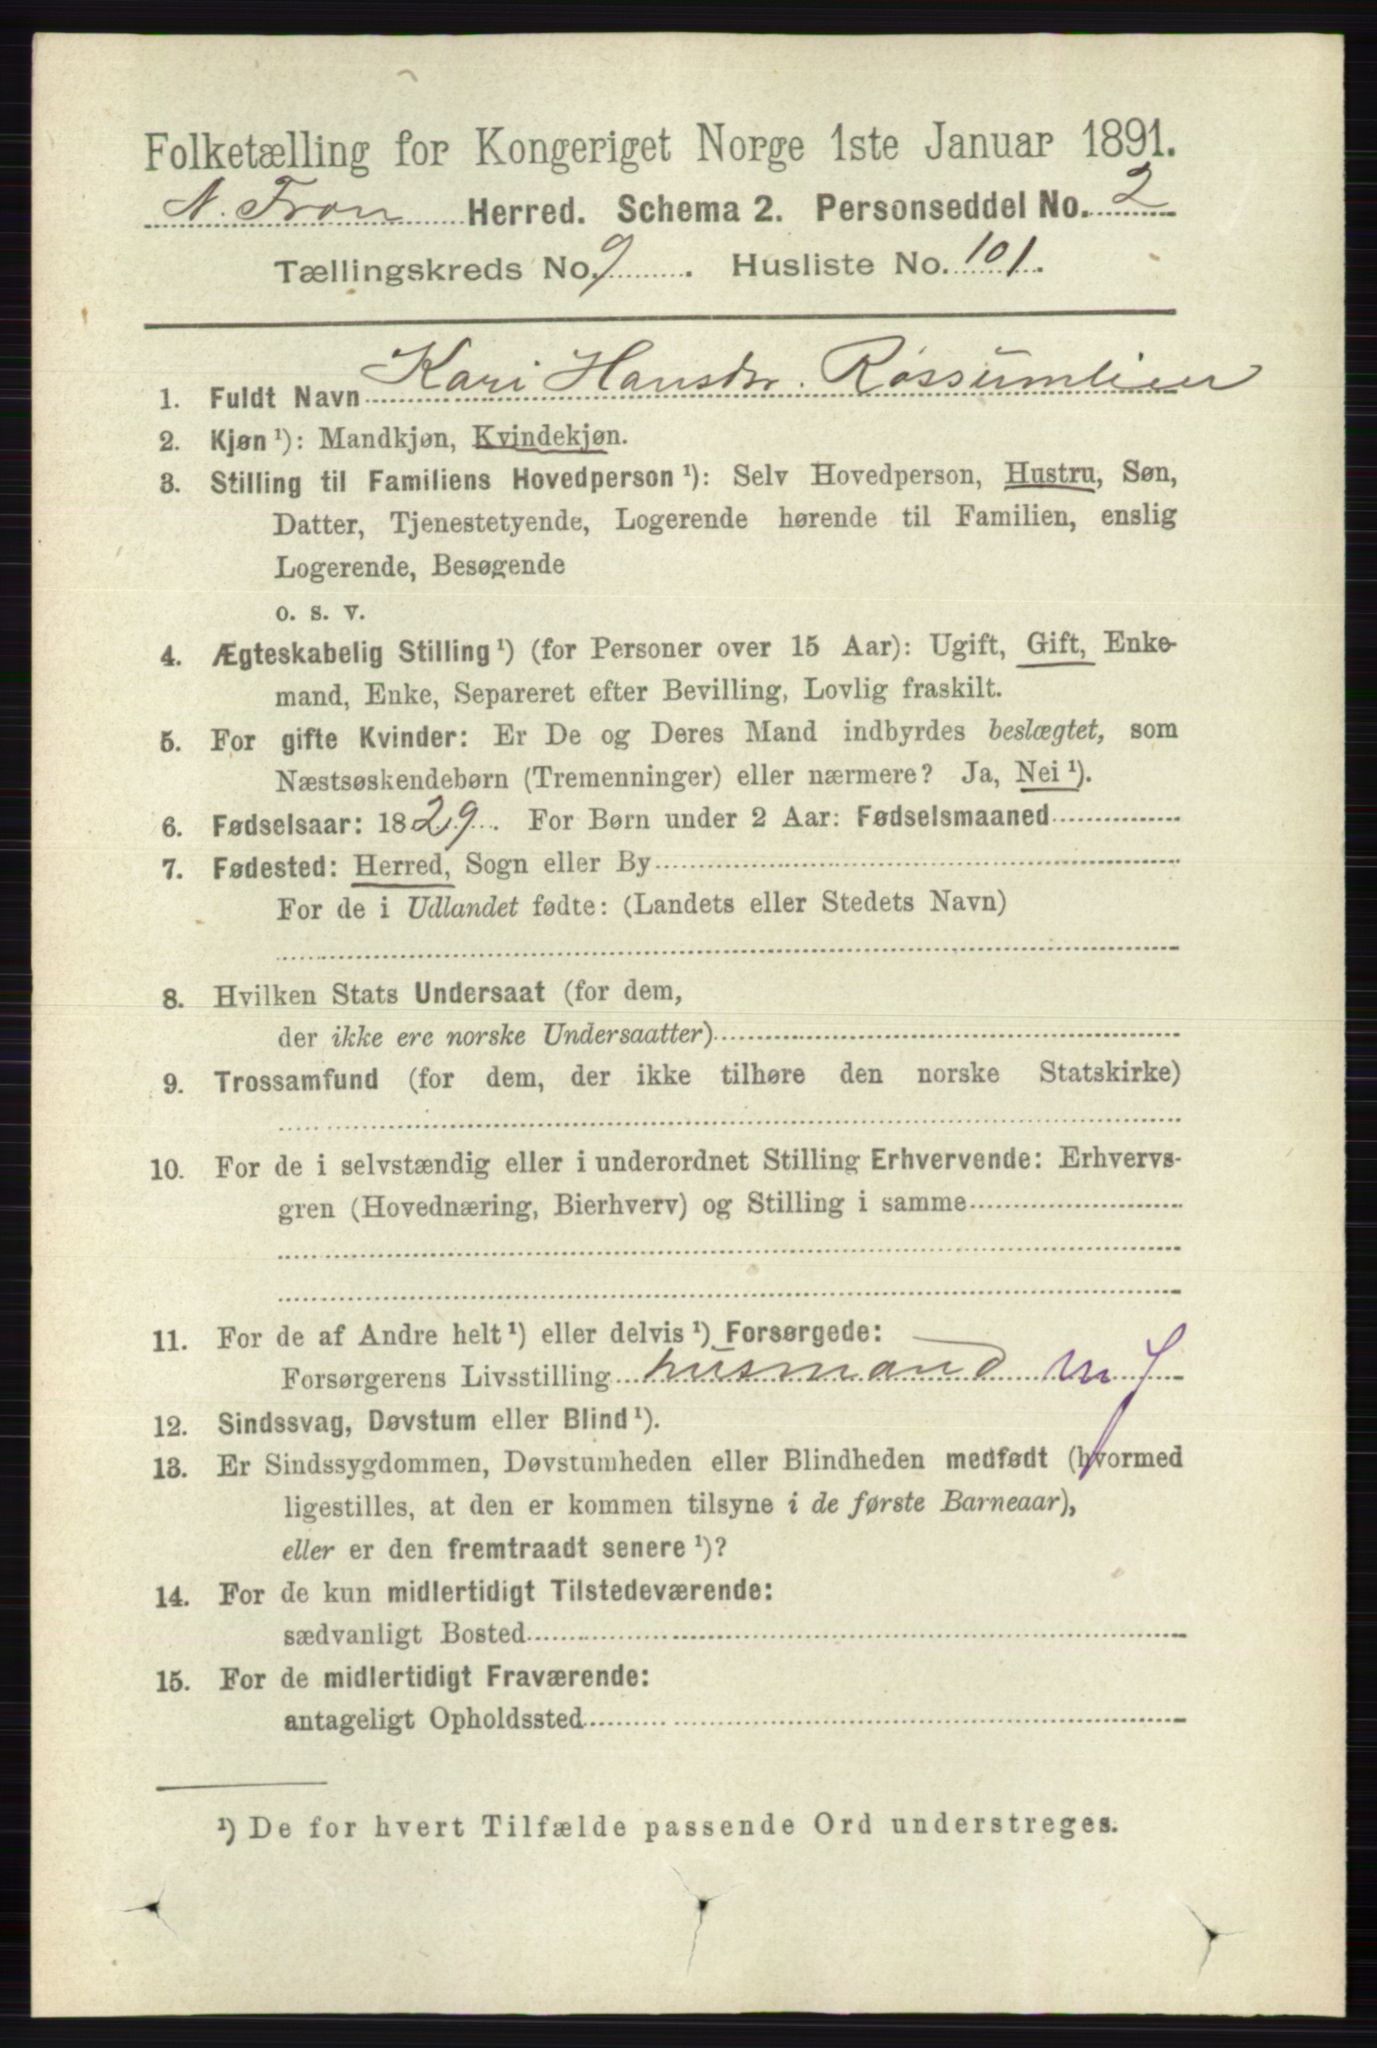 Folketælling for Kongeriget Norge 1ste Januar 1891.
N. Fron Herred. Schema 2. Personseddel No. 2
Tællingskreds No. 9. Husliste No. 101.
1. Fuldt Navn Kari Hansdr. Rossumlien
2. Kjøn ¹): Mandkjøn, Kvindekjøn.
3. Stilling til Familiens Hovedperson ¹): Selv Hovedperson, Hustru, Søn,
Datter, Tjenestetyende, Logerende hørende til Familien, enslig
Logerende, Besøgende
o. s. v.
4. Ægteskabelig Stilling ¹) (for Personer over 15 Aar): Ugift, Gift, Enke-
mand, Enke, Separeret efter Bevilling, Lovlig fraskilt.
5. For gifte Kvinder: Er De og Deres Mand indbyrdes beslægtet, som
Næstsøskendebørn (Tremenninger) eller nærmere? Ja, Nei ¹).
6. Fødselsaar: 1829. For Børn under 2 Aar: Fødselsmaaned
7. Fødested: Herred, Sogn eller By
For de i Udlandet fødte: (Landets eller Stedets Navn)
8. Hvilken Stats Undersaat (for dem,
der ikke ere norske Undersaatter)
9. Trossamfund (for dem, der ikke tilhøre den norske Statskirke)
10. For de i selvstændig eller i underordnet Stilling Erhvervende: Erhvervs-
gren (Hovednæring, Bierhverv) og Stilling i samme
11. For de af Andre helt ¹) eller delvis ¹) Forsørgede:
Forsørgerens Livsstilling husmand m J
12. Sindssvag, Døvstum eller Blind ¹).
13. Er Sindssygdommen, Døvstumheden eller Blindheden medfødt (hvormed
ligestilles, at den er kommen tilsyne i de første Barneaar),
eller er den fremtraadt senere ¹)?
14. For de kun midlertidigt Tilstedeværende:
sædvanligt Bosted
15. For de midlertidigt Fraværende:
antageligt Opholdssted
¹) De for hvert Tilfælde passende Ord understreges.